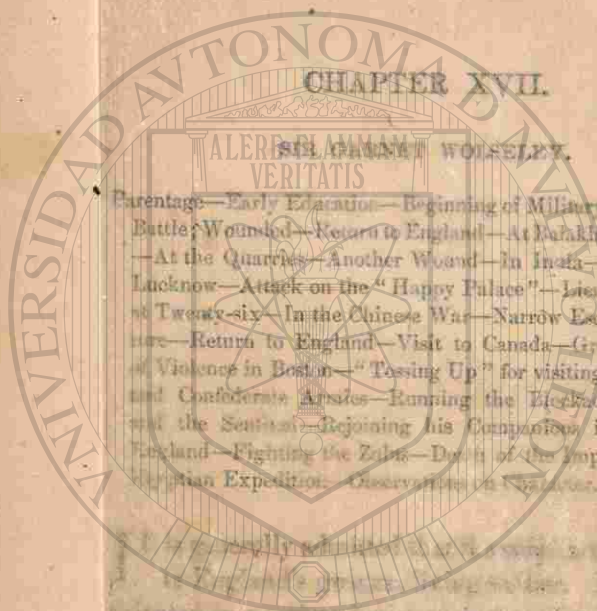 CHAPTER XVII.
SIR GARNET WOLSELEY.
Parentage—Early Education—Beginning of Military
Battle; Wounded—Return to England—At Balakl
—At the Quarries—Another Wound—In India—
Lucknow—Attack on the "Happy Palace"—Lieu
at Twenty-six—In the Chinese War—Narrow Es
ture—Return to England—Visit to Canada—Gr
of Violence in Boston—"Tossing Up" for visiting
and Confederate Armies—Running the Blockad
and the Sentinel—Rejoining his Companions i
England—Fighting the Zulus—Death of the Imp
Egyptian Expedition—Observations on Character.
generally admitted that
ALERE FLAMMAM
VERITATIS
UNIVERSIDAD AVTONOMA D NVE